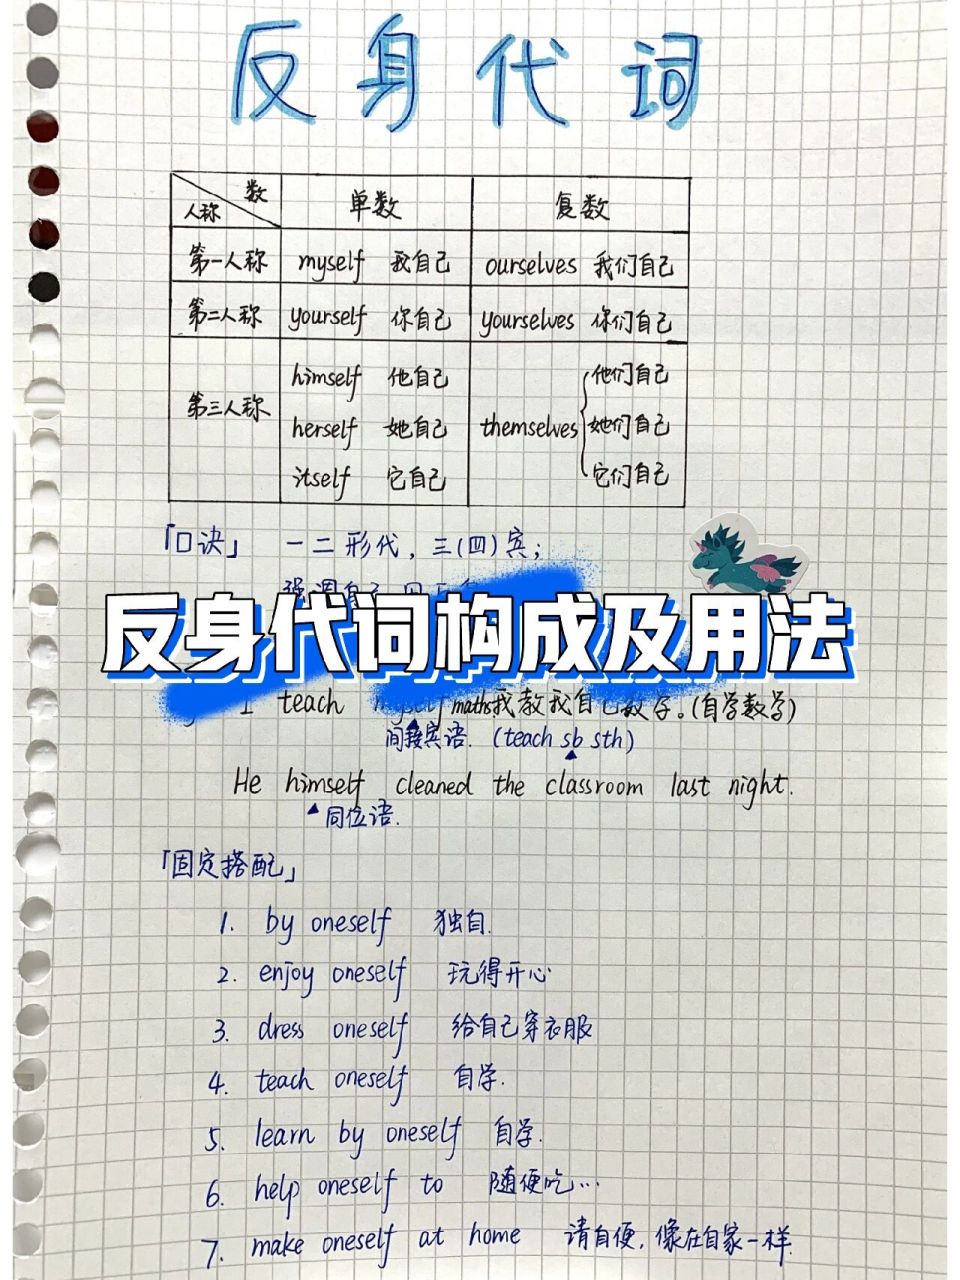 反身代词
数 单数 复数
人称
第一人称 myself 我自己 ourselves 我们自己
第二人称 yourself 你自己 yourselves 你们自己
第三人称 himself 他自己 themselves 他们自己
herself 她自己 她们自己
itself 它自己 它们自己
「口诀」 一二形代，三(四)宾；
强调自己
反身代词构成及用法
I teach myself maths我教我自己数学。(自学数学)
间接宾语. (teach sb sth)
He himself cleaned the classroom last night.
同位语.
「固定搭配」
1. by oneself 独自.
2. enjoy oneself 玩得开心
3. dress oneself 给自己穿衣服
4. teach oneself 自学.
5. learn by oneself 自学.
6. help oneself to 随便吃…
7. make oneself at home 请自便，像在自家一样.